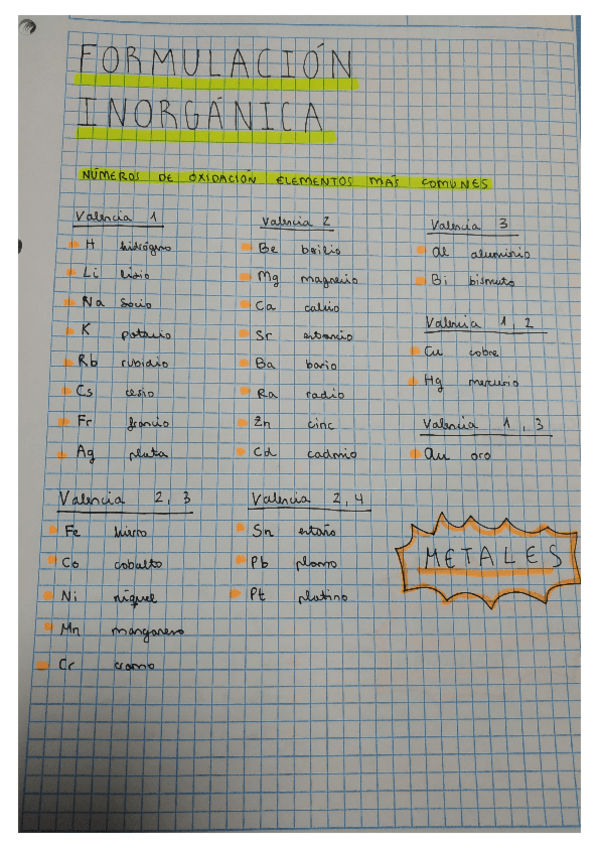 FORMULACIÓN
INORGÁNICA
NÚMEROS DE OXIDACIÓN ELEMENTOS MÁS COMUNES
Valencia 1
H hidrógeno
Li litio
Na sodio
K potasio
Rb rubidio
Cs cesio
Fr francio
Ag plata
Valencia 2
Be berilio
Mg magnesio
Ca calcio
Sr estroncio
Ba bario
Ra radio
Zn cinc
Cd cadmio
Valencia 3
Al aluminio
Bi bismuto
Valencia 1, 2
Cu cobre
Hg mercurio
Valencia 1, 3
Au oro
Valencia 2, 3
Fe hierro
Co cobalto
Ni níquel
Mn manganeso
Cr cromo
Valencia 2, 4
Sn estaño
Pb plomo
Pt platino
METALES